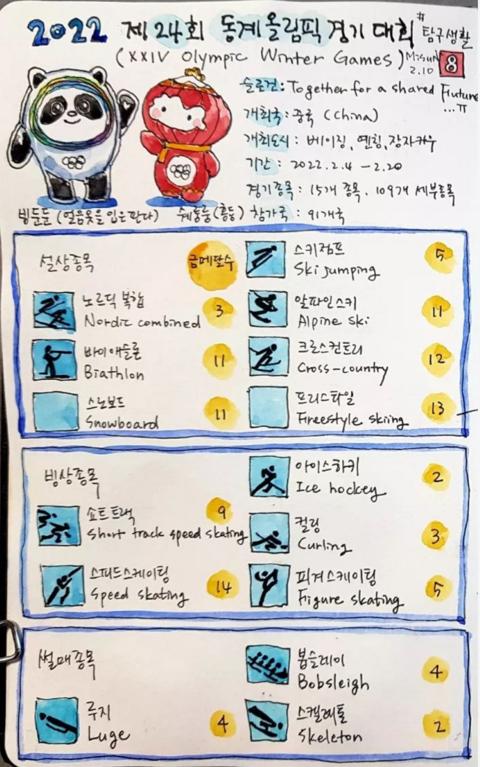 2022 제24회 동계올림픽 경기 대회 #탐구생활
(XXIV Olympic Winter Games) Misun 8
2.10
슬로건: Together for a shared Future
...π
개최국: 중국 (China)
개최도시: 베이징, 옌칭, 장자커우
기간: 2022.2.4 - 2.20
경기종목: 15개 종목, 109개 세부종목
빙둔둔 (얼음옷을 입은 판다) 쉐룽룽 (홍등) 참가국: 91개국
설상종목 금메달수
노르딕 복합 3
Nordic combined
바이애슬론 11
Biathlon
스노보드 11
Snowboard
스키점프 5
Ski jumping
알파인스키 11
Alpine ski
크로스컨트리 12
Cross-country
프리스타일 13
Freestyle skiing
빙상종목
쇼트트랙 9
Short track speed skating
스피드스케이팅 14
Speed skating
아이스하키 2
Ice hockey
컬링 3
Curling
피겨스케이팅 5
Figure skating
썰매종목
루지 4
Luge
봅슬레이 4
Bobsleigh
스켈레톤 2
Skeleton